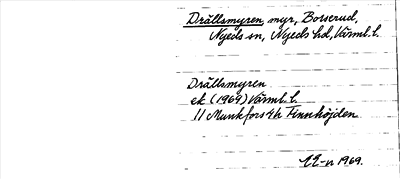 Drällsmyren myr, Borserud,
Nyeds sn, Nyeds hd, Värml. l.
Drällsmyren
ek (1969) Värml. l.
11 Munkfors 4h Finnhöjden
1969.